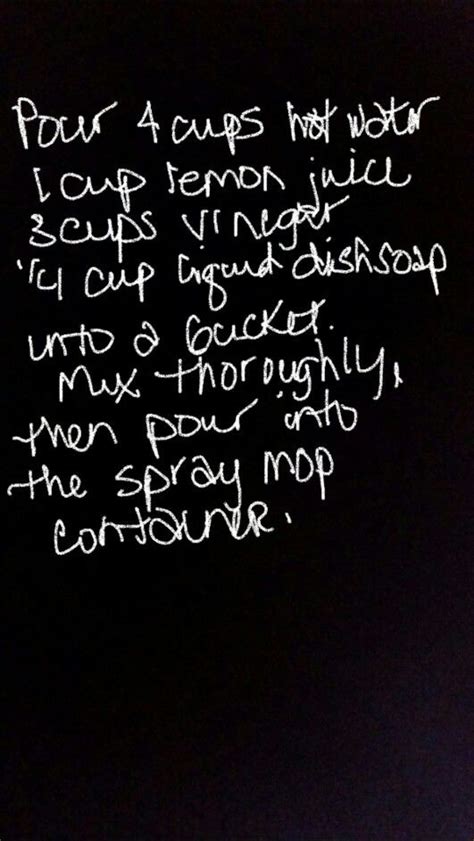 Pour 4 cups hot water
1 cup lemon juice
3 cups vinegar
1/4 cup liquid dishsoap
into a bucket.
Mix thoroughly,
then pour into
the spray mop
container.